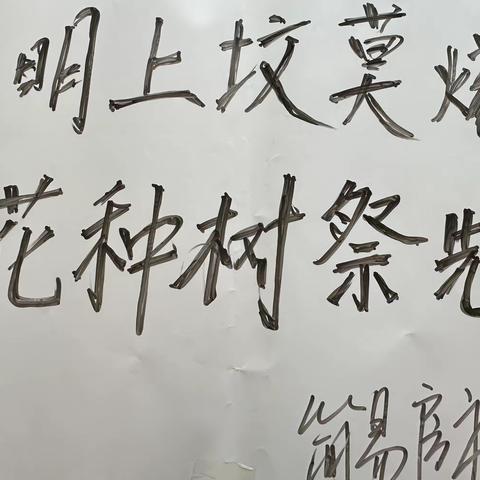 明上坟莫
花种树祭先
简易